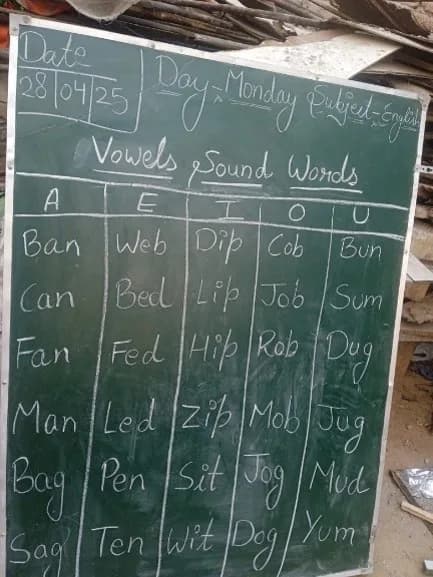 Date
28/04/25
Day - Monday Subject - English
Vowels Sound Words
A E I O U
Ban Web Dip Cob Bun
Can Bed Lip Job Sum
Fan Fed Hip Rob Dug
Man Led Zip Mob Jug
Bag Pen Sit Jog Mud
Sag Ten Wit Dog Yum